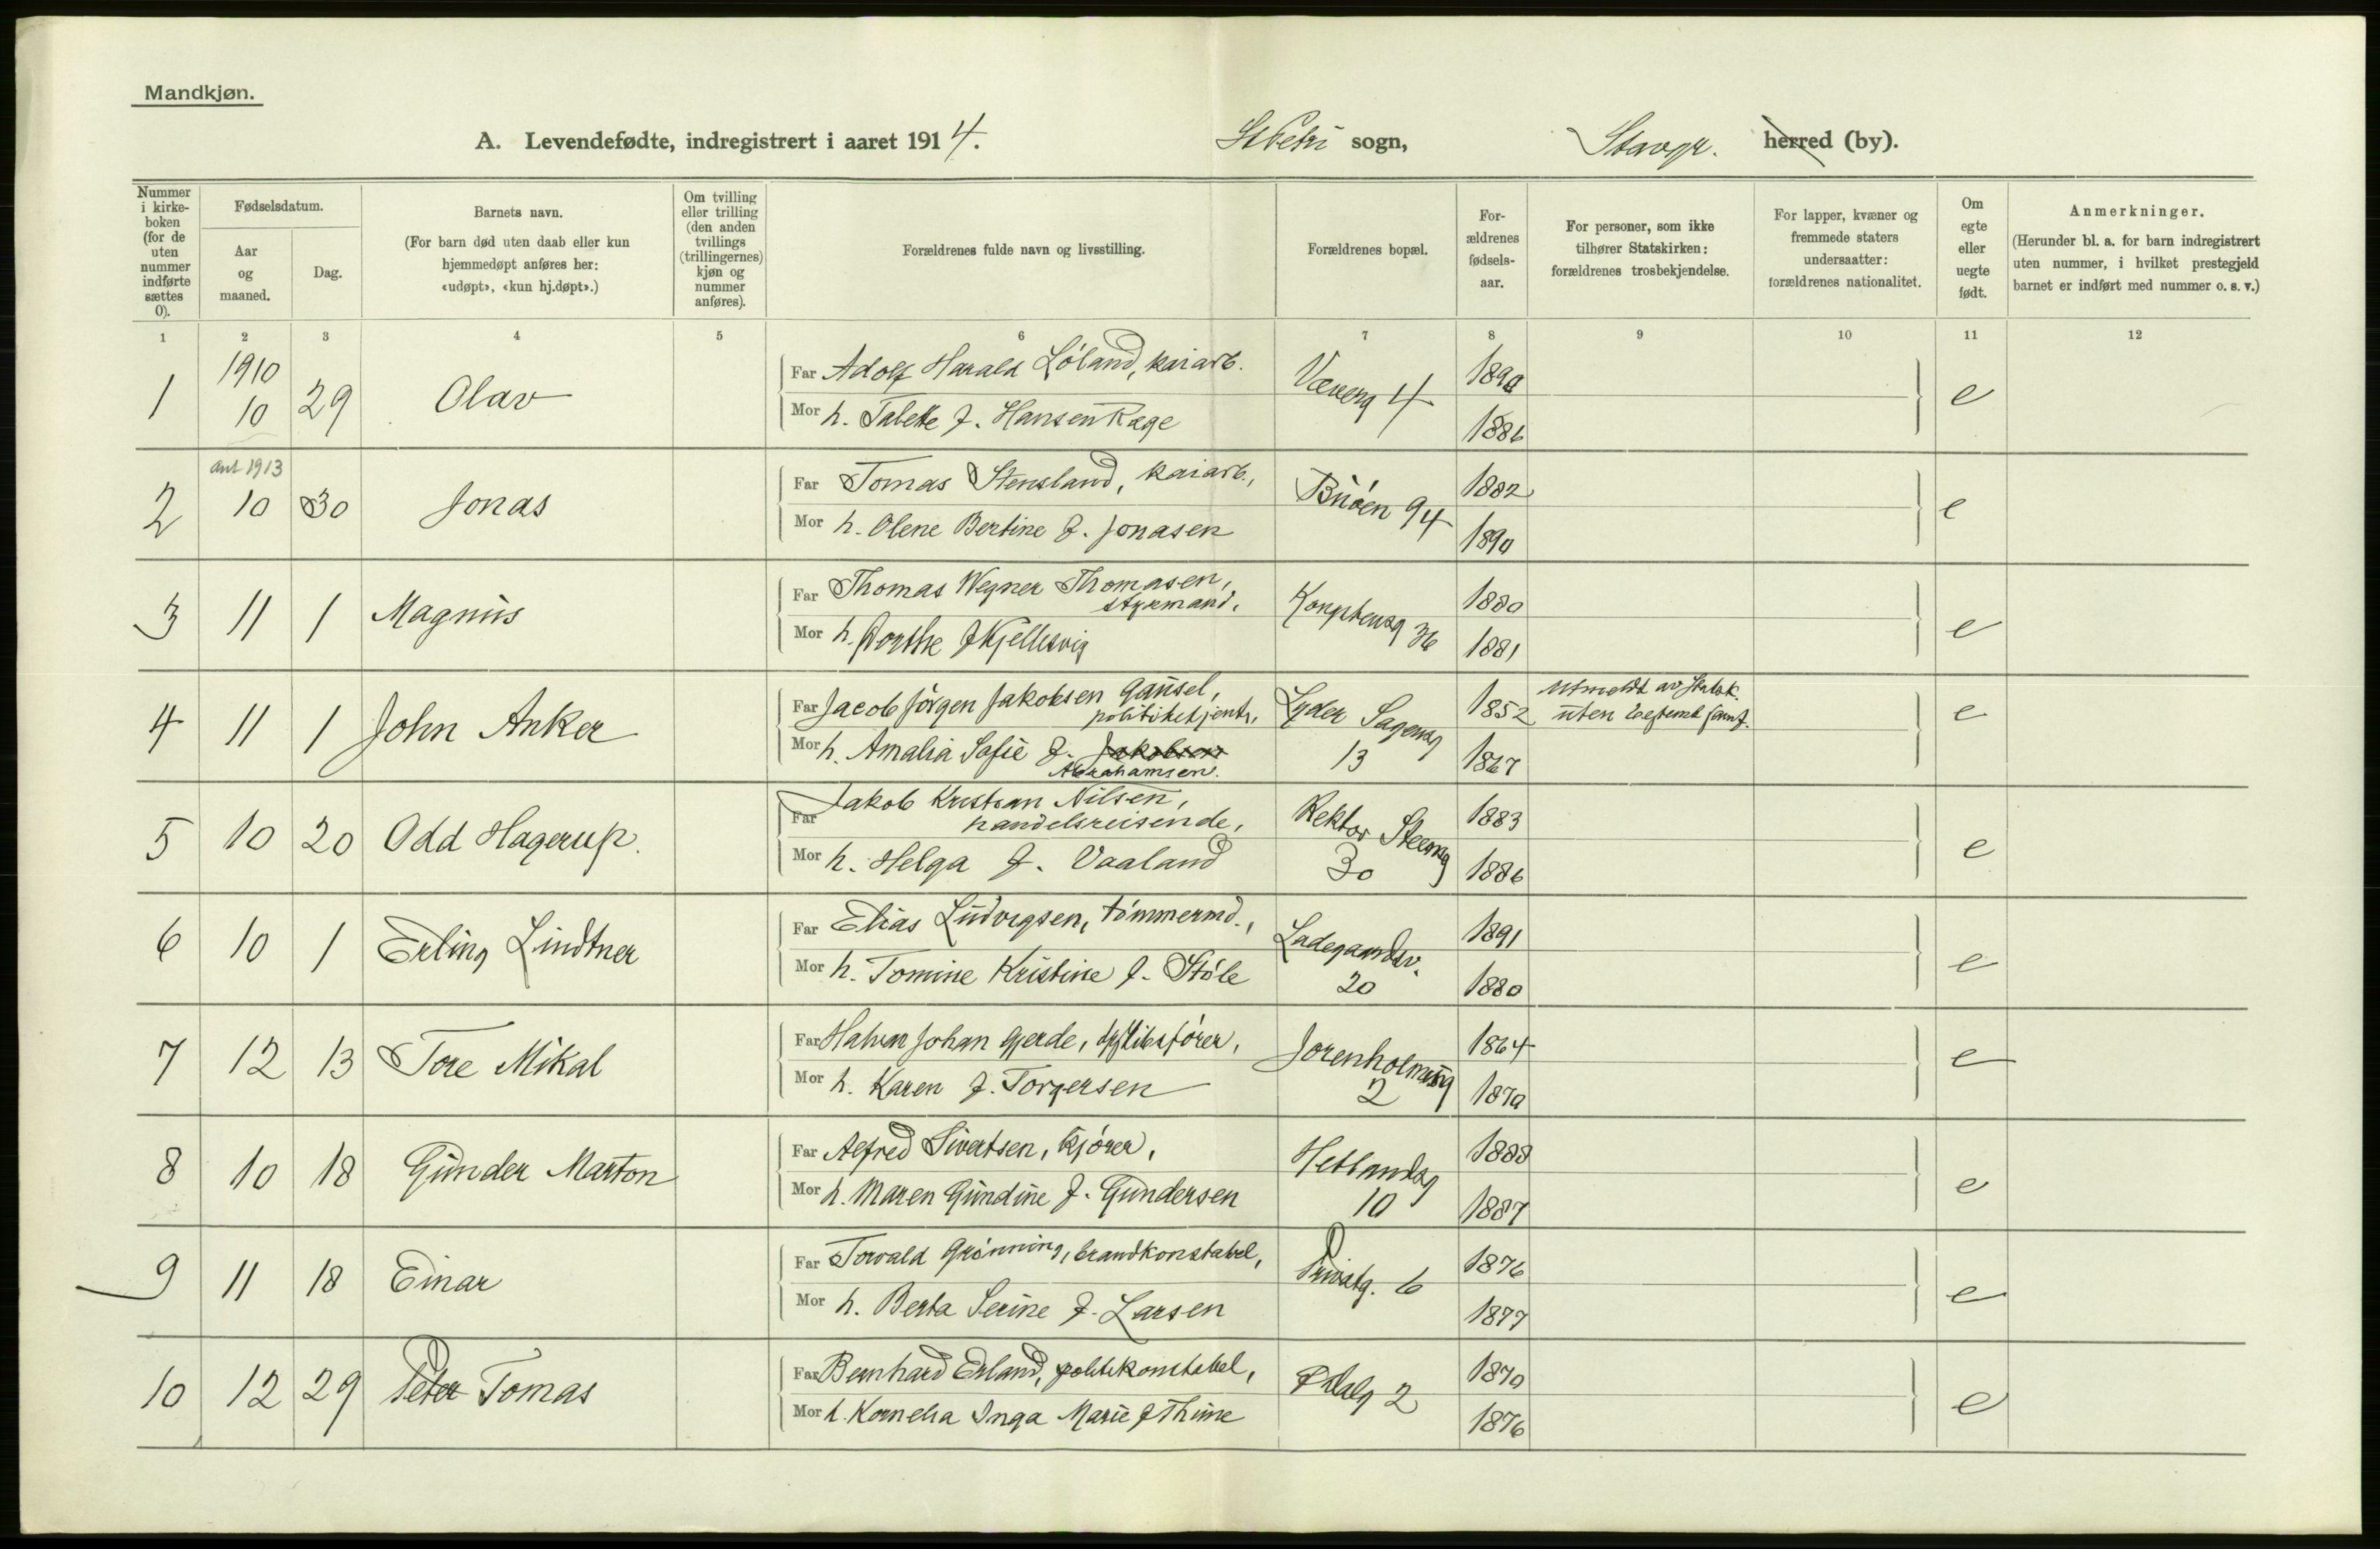 Mandkjøn.
A. Levendefødte, indregistrert i aaret 1914. St Petri sogn, Stavgr. herred (by).
Nummer i kirke-boken (for de uten nummer indførte sættes 0).
Fødselsdatum.
Aar og maaned.
Dag.
Barnets navn.
(For barn død uten daab eller kun hjemmedøpt anføres her: «udøpt», «kun hj.døpt».)
Om tvilling eller trilling (den anden tvillings (trillingernes) kjøn og nummer anføres).
Forældrenes fulde navn og livsstilling.
Forældrenes bopæl.
For-ældrenes fødsels-aar.
For personer, som ikke tilhører Statskirken: forældrenes trosbekjendelse.
For lapper, kvæner og fremmede staters undersaatter: forældrenes nationalitet.
Om egte eller uegte født.
Anmerkninger.
(Herunder bl. a. for barn indregistrert uten nummer, i hvilket prestegjeld barnet er indført med nummer o. s. v.)
1 2 3 4 5 6 7 8 9 10 11 12
1 1910 10 29 Olav Far Adolf Harald Løland, kaiarb. Væverg 4 1890 e
Mor h. Talette f. Hansen Rage 1886
ant 1913
2 10 30 Jonas Far Tomas Stensland, kaiarb., Buøen 94 1882 e
Mor h. Olene Bertine f. Jonasen 1890
3 11 1 Magnus Far Thomas Wegner Thomasen, styrmand, Kongstensg 36 1880 e
Mor h. Dorthe f Kjellesvig 1881
4 11 1 John Anker Far Jacob Jørgen Jakobsen Gausel, politibetjent, Lyder Sagensg 13 1852 Utmeldt av Statsk. uten bestemt samf. e
Mor h. Amalia Sofie f. Jakobsen Abrahamsen. 1867
5 10 20 Odd Hagerup. Far Jakob Kristian Nilsen, handelsreisende, Rektor Steensg 30 1883 e
Mor h. Helga f. Vaaland 1886
6 10 1 Erling Lindtner Far Elias Ludvigsen, tømmermd., Ladegaardsv. 20 1891 e
Mor h. Tomine Kristine f. Støle 1880
7 12 13 Tore Mikal Far Halvor Johan Gjerde, skibsfører, Jorenholmeng 2 1864 e
Mor h. Karen f. Torgersen 1870
8 10 18 Gunder Marton Far Alfred Sivertsen, kjører, Hetlandsg 10 1888 e
Mor h. Maren Gundine f. Gundersen 1887
9 11 18 Einar Far Torvald Grønning, brandkonstabel, Privatg. 6 1876 e
Mor h. Berta Serine f. Larsen 1877
10 12 29 Peter Tomas Far Bernhard Erland, politikonstabel, 2 1870 e
Mor h. Kornelia Inga Marie f Thime 1876